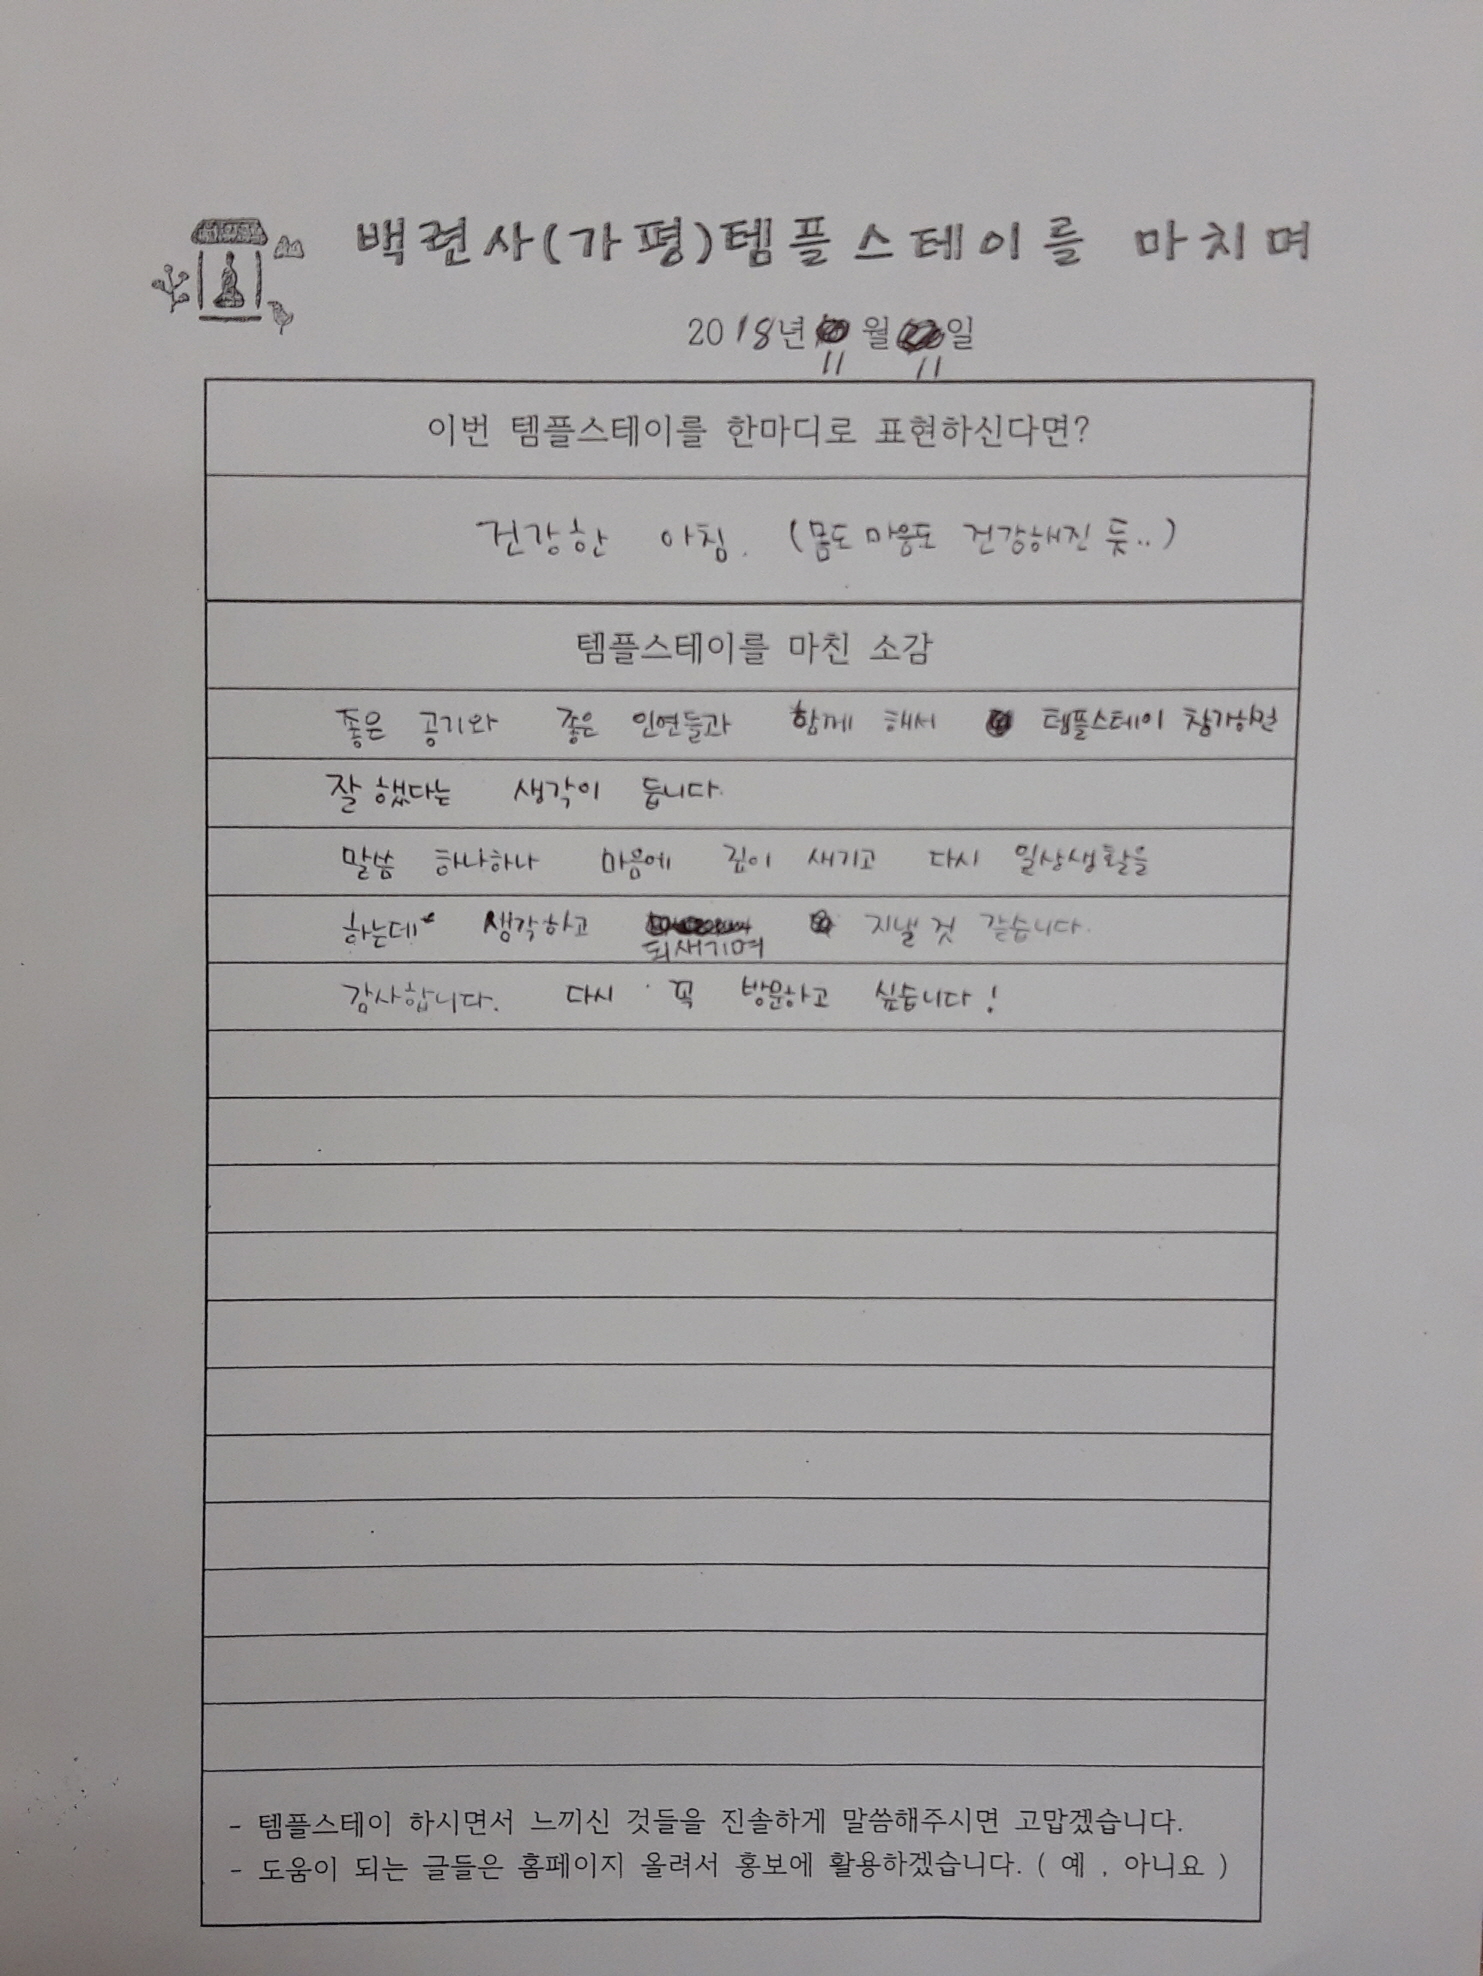 백련사(가평)템플스테이를 마치며
2018년 11월 11일
이번 템플스테이를 한마디로 표현하신다면?
건강한 아침. (몸도 마음도 건강해진 듯..)
템플스테이를 마친 소감
좋은 공기와 좋은 인연들과 함께 해서 템플스테이 참가하면
잘 했다는 생각이 듭니다.
말씀 하나하나 마음에 깊이 새기고 다시 일상생활을
하는데 생각하고 되새기며 지낼 것 같습니다.
감사합니다. 다시 꼭 방문하고 싶습니다!
- 템플스테이 하시면서 느끼신 것들을 진솔하게 말씀해주시면 고맙겠습니다.
- 도움이 되는 글들은 홈페이지 올려서 홍보에 활용하겠습니다. ( 예 , 아니요 )